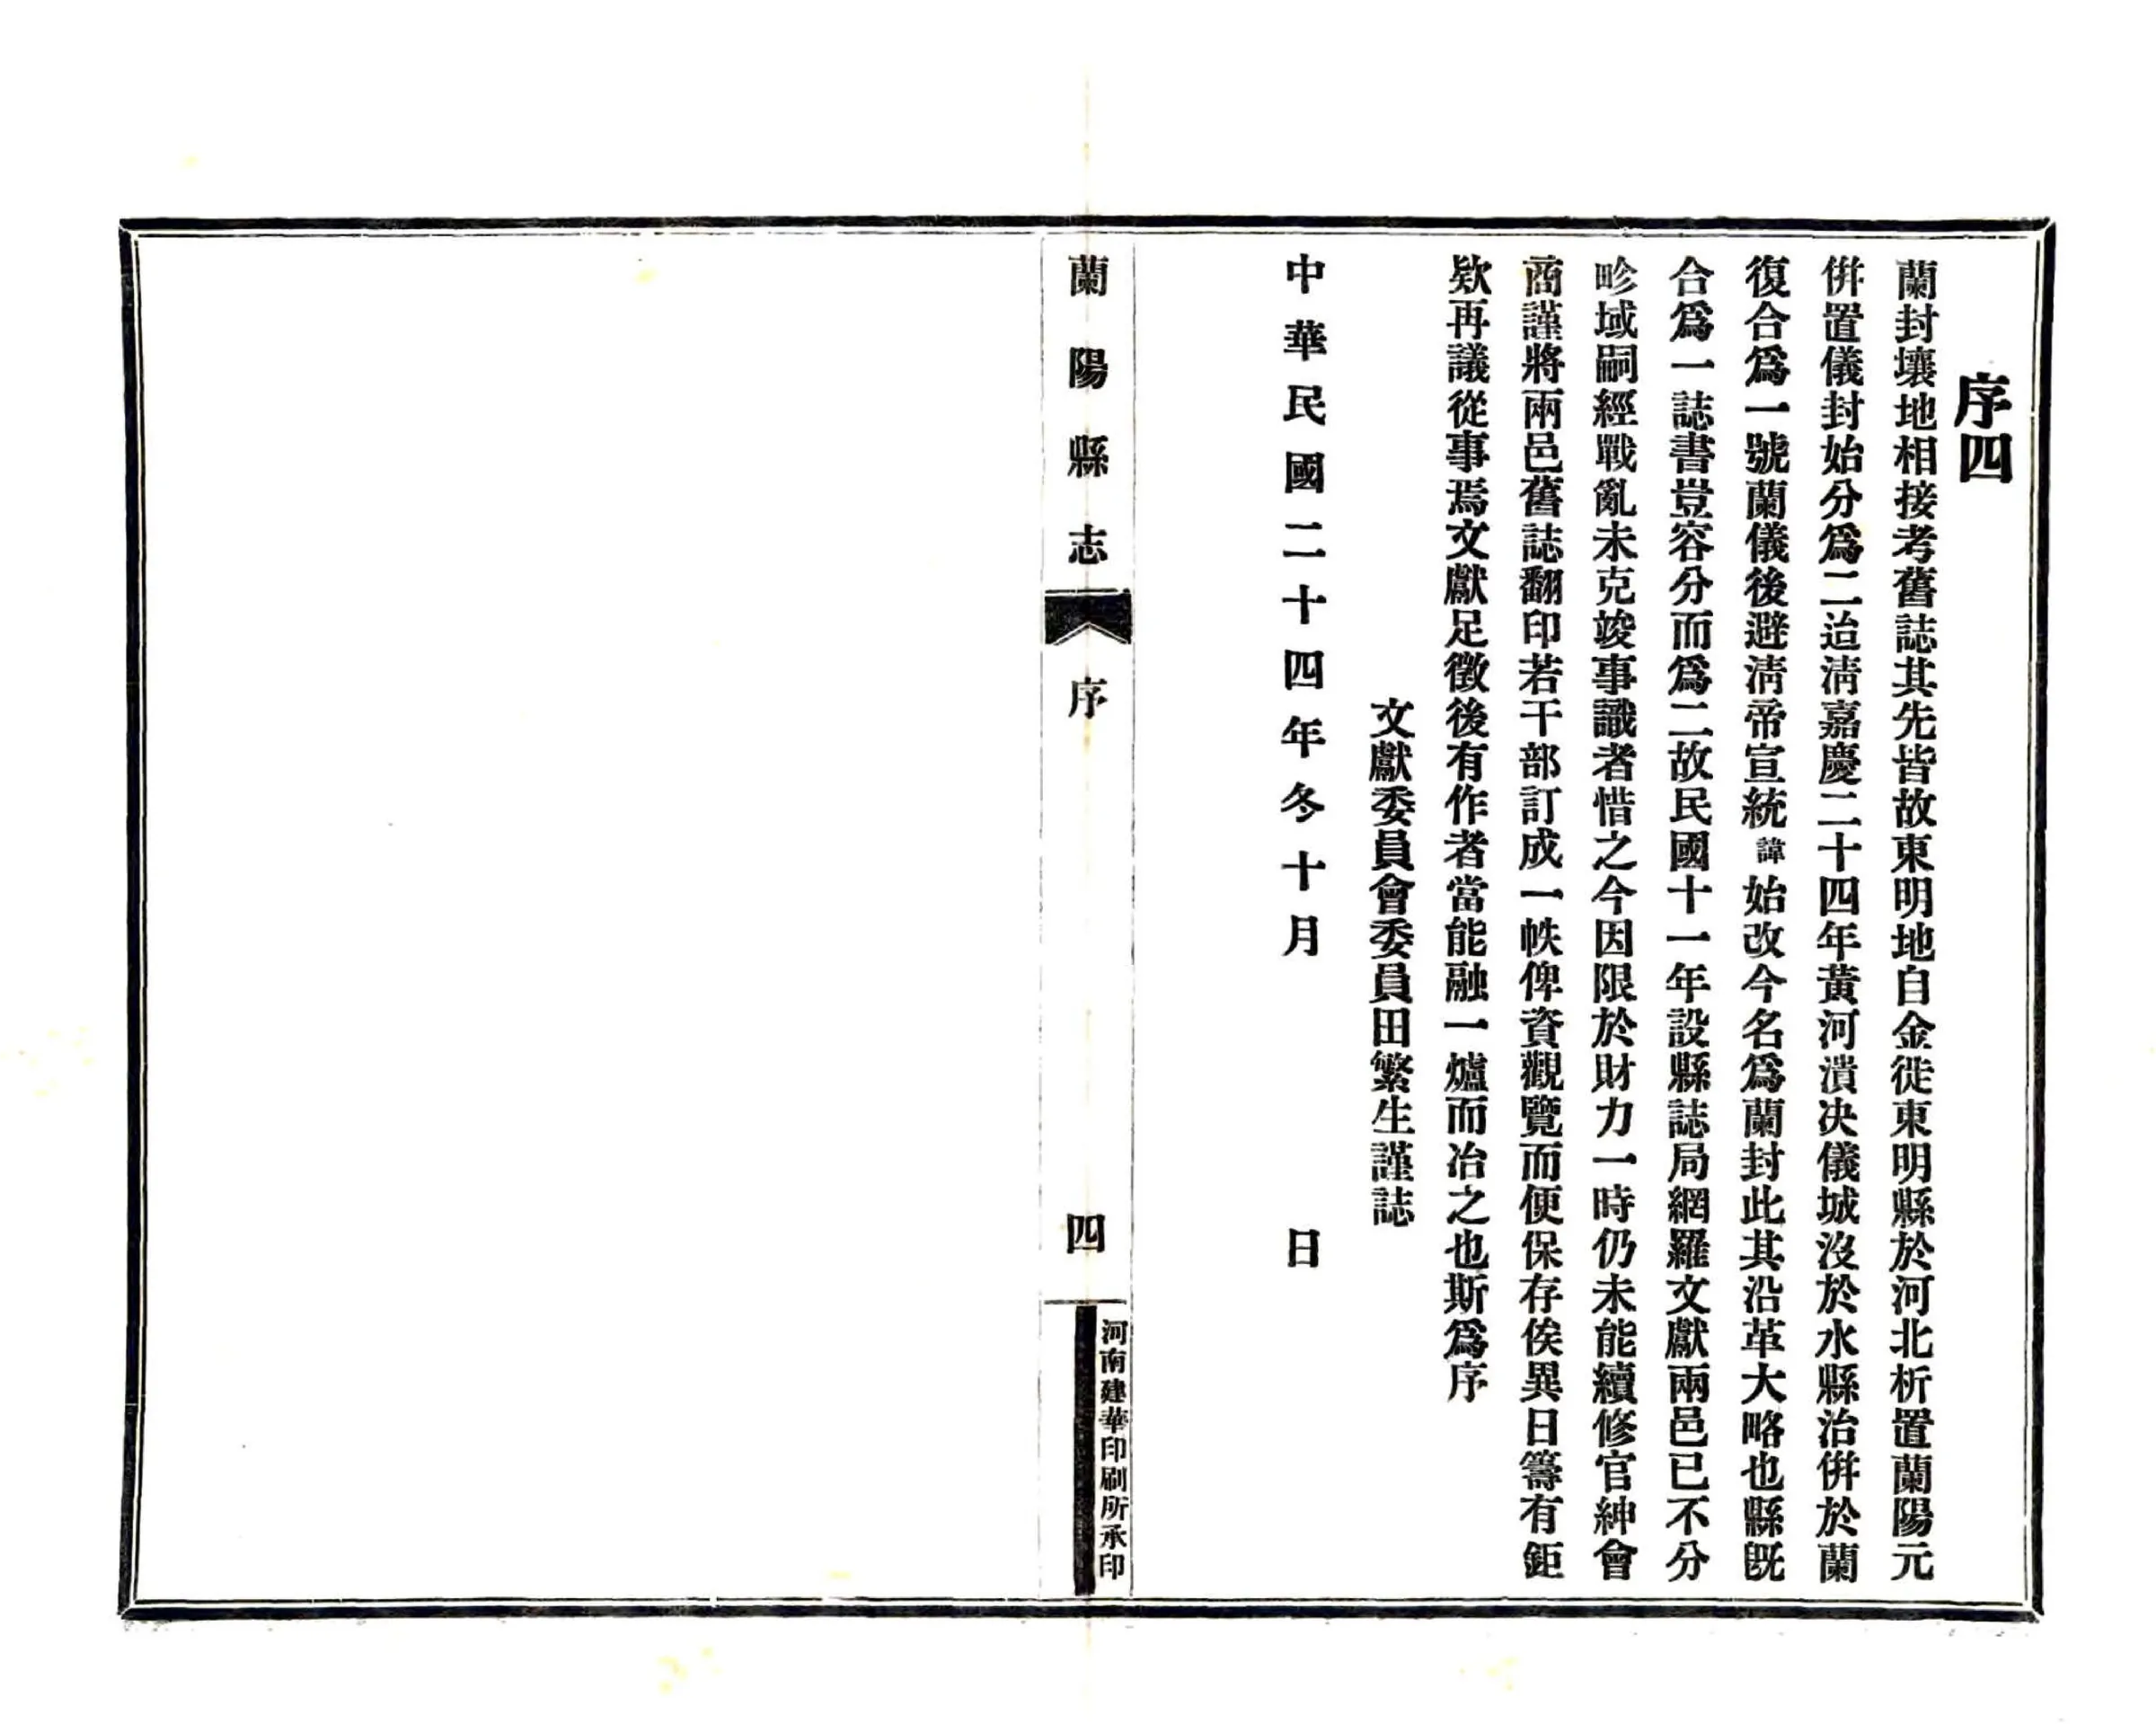 序四
蘭封壤地相接考舊誌其先皆故東明地自金徙東明縣於河北析置蘭陽元
併置儀封始分爲二迨淸嘉慶二十四年黃河潰决儀城沒於水縣治併於蘭
復合爲一號蘭儀後避淸帝宣統諱始改今名爲蘭封此其沿革大略也縣旣
合爲一誌書豈容分而爲二故民國十一年設縣誌局網羅文獻兩邑已不分
畛域嗣經戰亂未克竣事識者惜之今因限於財力一時仍未能續修官紳會
商謹將兩邑舊誌翻印若干部訂成一帙俾資觀覽而便保存俟異日籌有鉅
欵再議從事焉文獻足徵後有作者當能融一爐而冶之也斯爲序
文獻委員會委員田繁生謹誌
中華民國二十四年冬十月　日
蘭陽縣志
序
四
河南建華印刷所承印